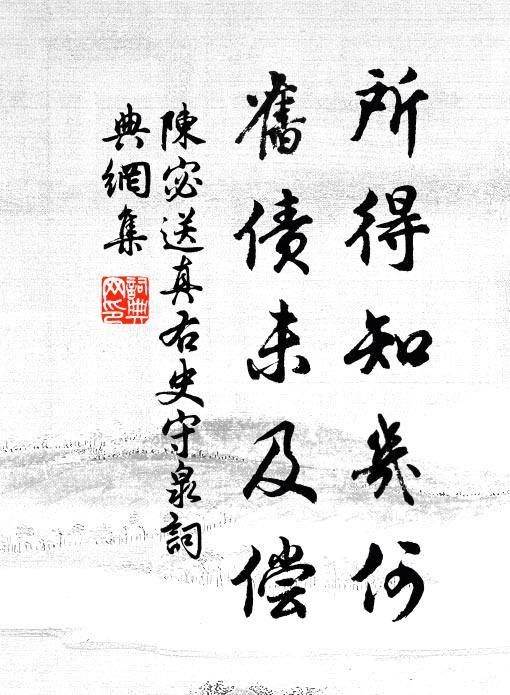 所得知幾何
舊債未及偿
陳宓送真右史守泉詞
典網集
詞典
网印